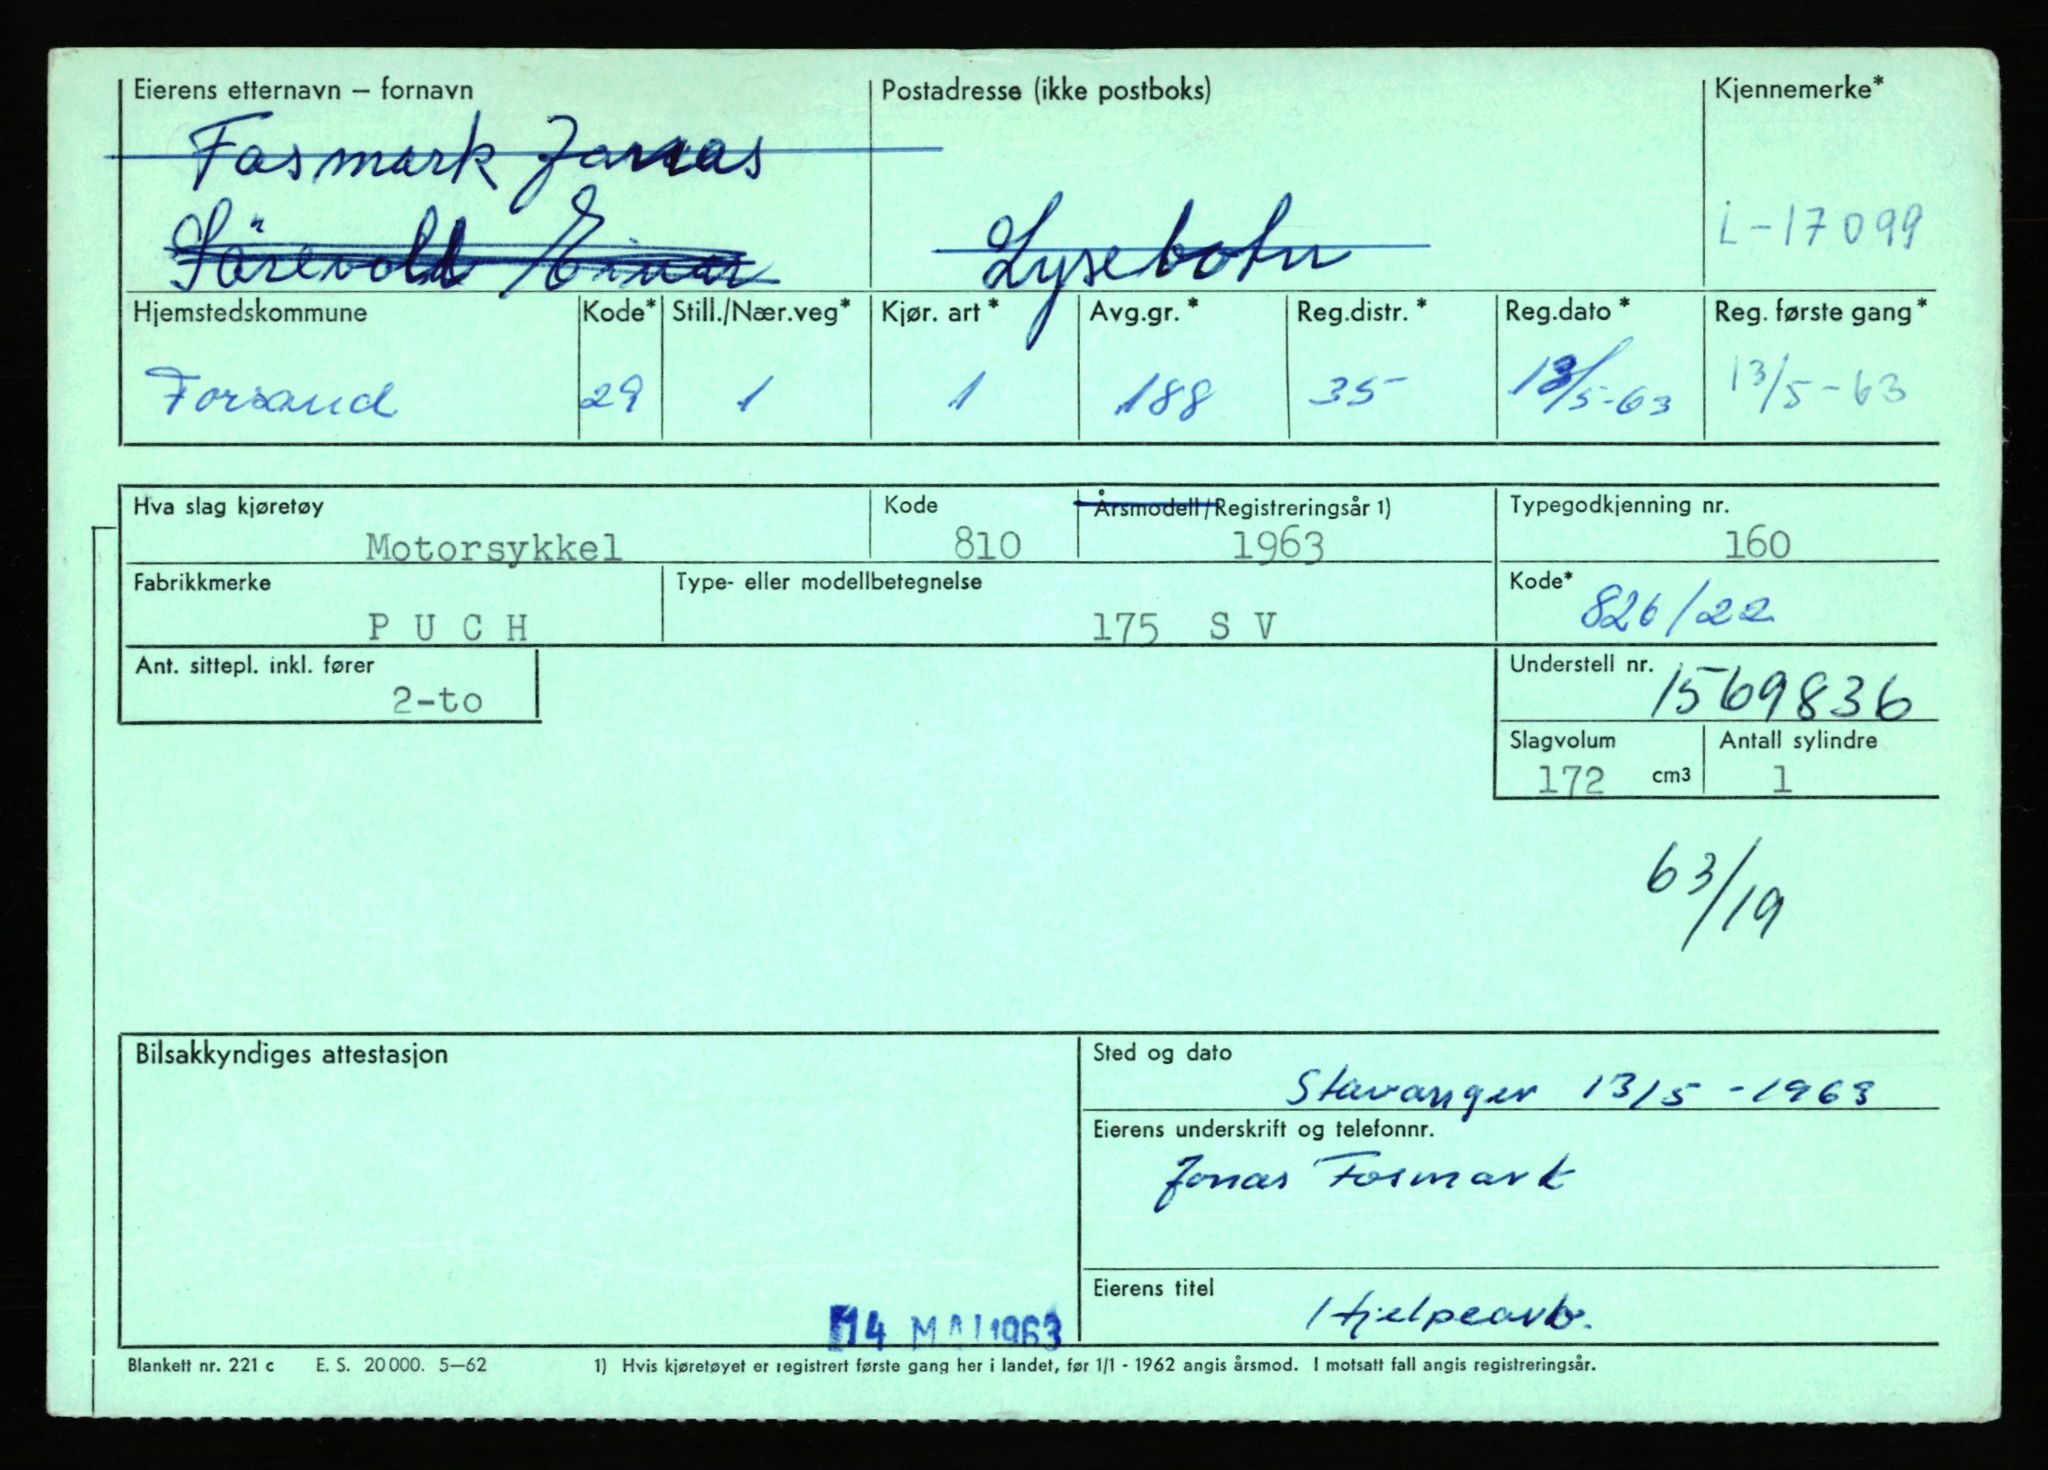 Eierens etternavn – fornavn
Postadresse (ikke postboks)
Kjennemerke*
Fosmark Jonas
Einar
Lysebotn
L-17099
Hjemstedskommune
Kode*
Still./Nær.veg*
Kjør. art*
Avg.gr.*
Reg.distr.*
Reg.dato*
Reg. første gang*
Forsand
29
1
1
188
35
13/5-63
13/5-63
Hva slag kjøretøy
Kode
Årsmodell/Registreringsår 1)
Typegodkjenning nr.
Motorsykkel
810
1963
160
Fabrikkmerke
Type- eller modellbetegnelse
Kode*
P U C H
175 S V
826/22
Ant. sittepl. inkl. fører
2-to
Understell nr.
1569836
Slagvolum
Antall sylindre
172 cm3
1
63/19
Bilsakkyndiges attestasjon
Sted og dato
Stavanger 13/5-1963
Eierens underskrift og telefonnr.
Jonas Fosmark
Eierens titel
Hjelpearb.
14 MAI 1963
Blankett nr. 221 c E. S. 20000. 5–62
1) Hvis kjøretøyet er registrert første gang her i landet, før 1/1 - 1962 angis årsmod. I motsatt fall angis registreringsår.